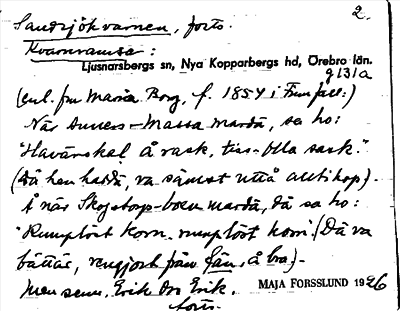 Sandsjökvarnen, forts. 2.
Kvarnramsa:
Ljusnarsbergs sn, Nya Kopparbergs hd, Örebro län.
g 131a
(enl. fru Maria Borg, f. 1854 i Finnfall:)
När Anners-Massa marda, sa ho:
"Havärskal å rask, tiss-Olla sask."
(Då hen hadd, va sämst uttå alltihop).
Å när Skogstorps-boen marda, då sa ho:
"Rumplöst korn, rumplöst korn". (Då va
bättär, rengjort från , å bra).
Men senn, Erik Ors Erik.
forts.
MAJA FORSSLUND 1926